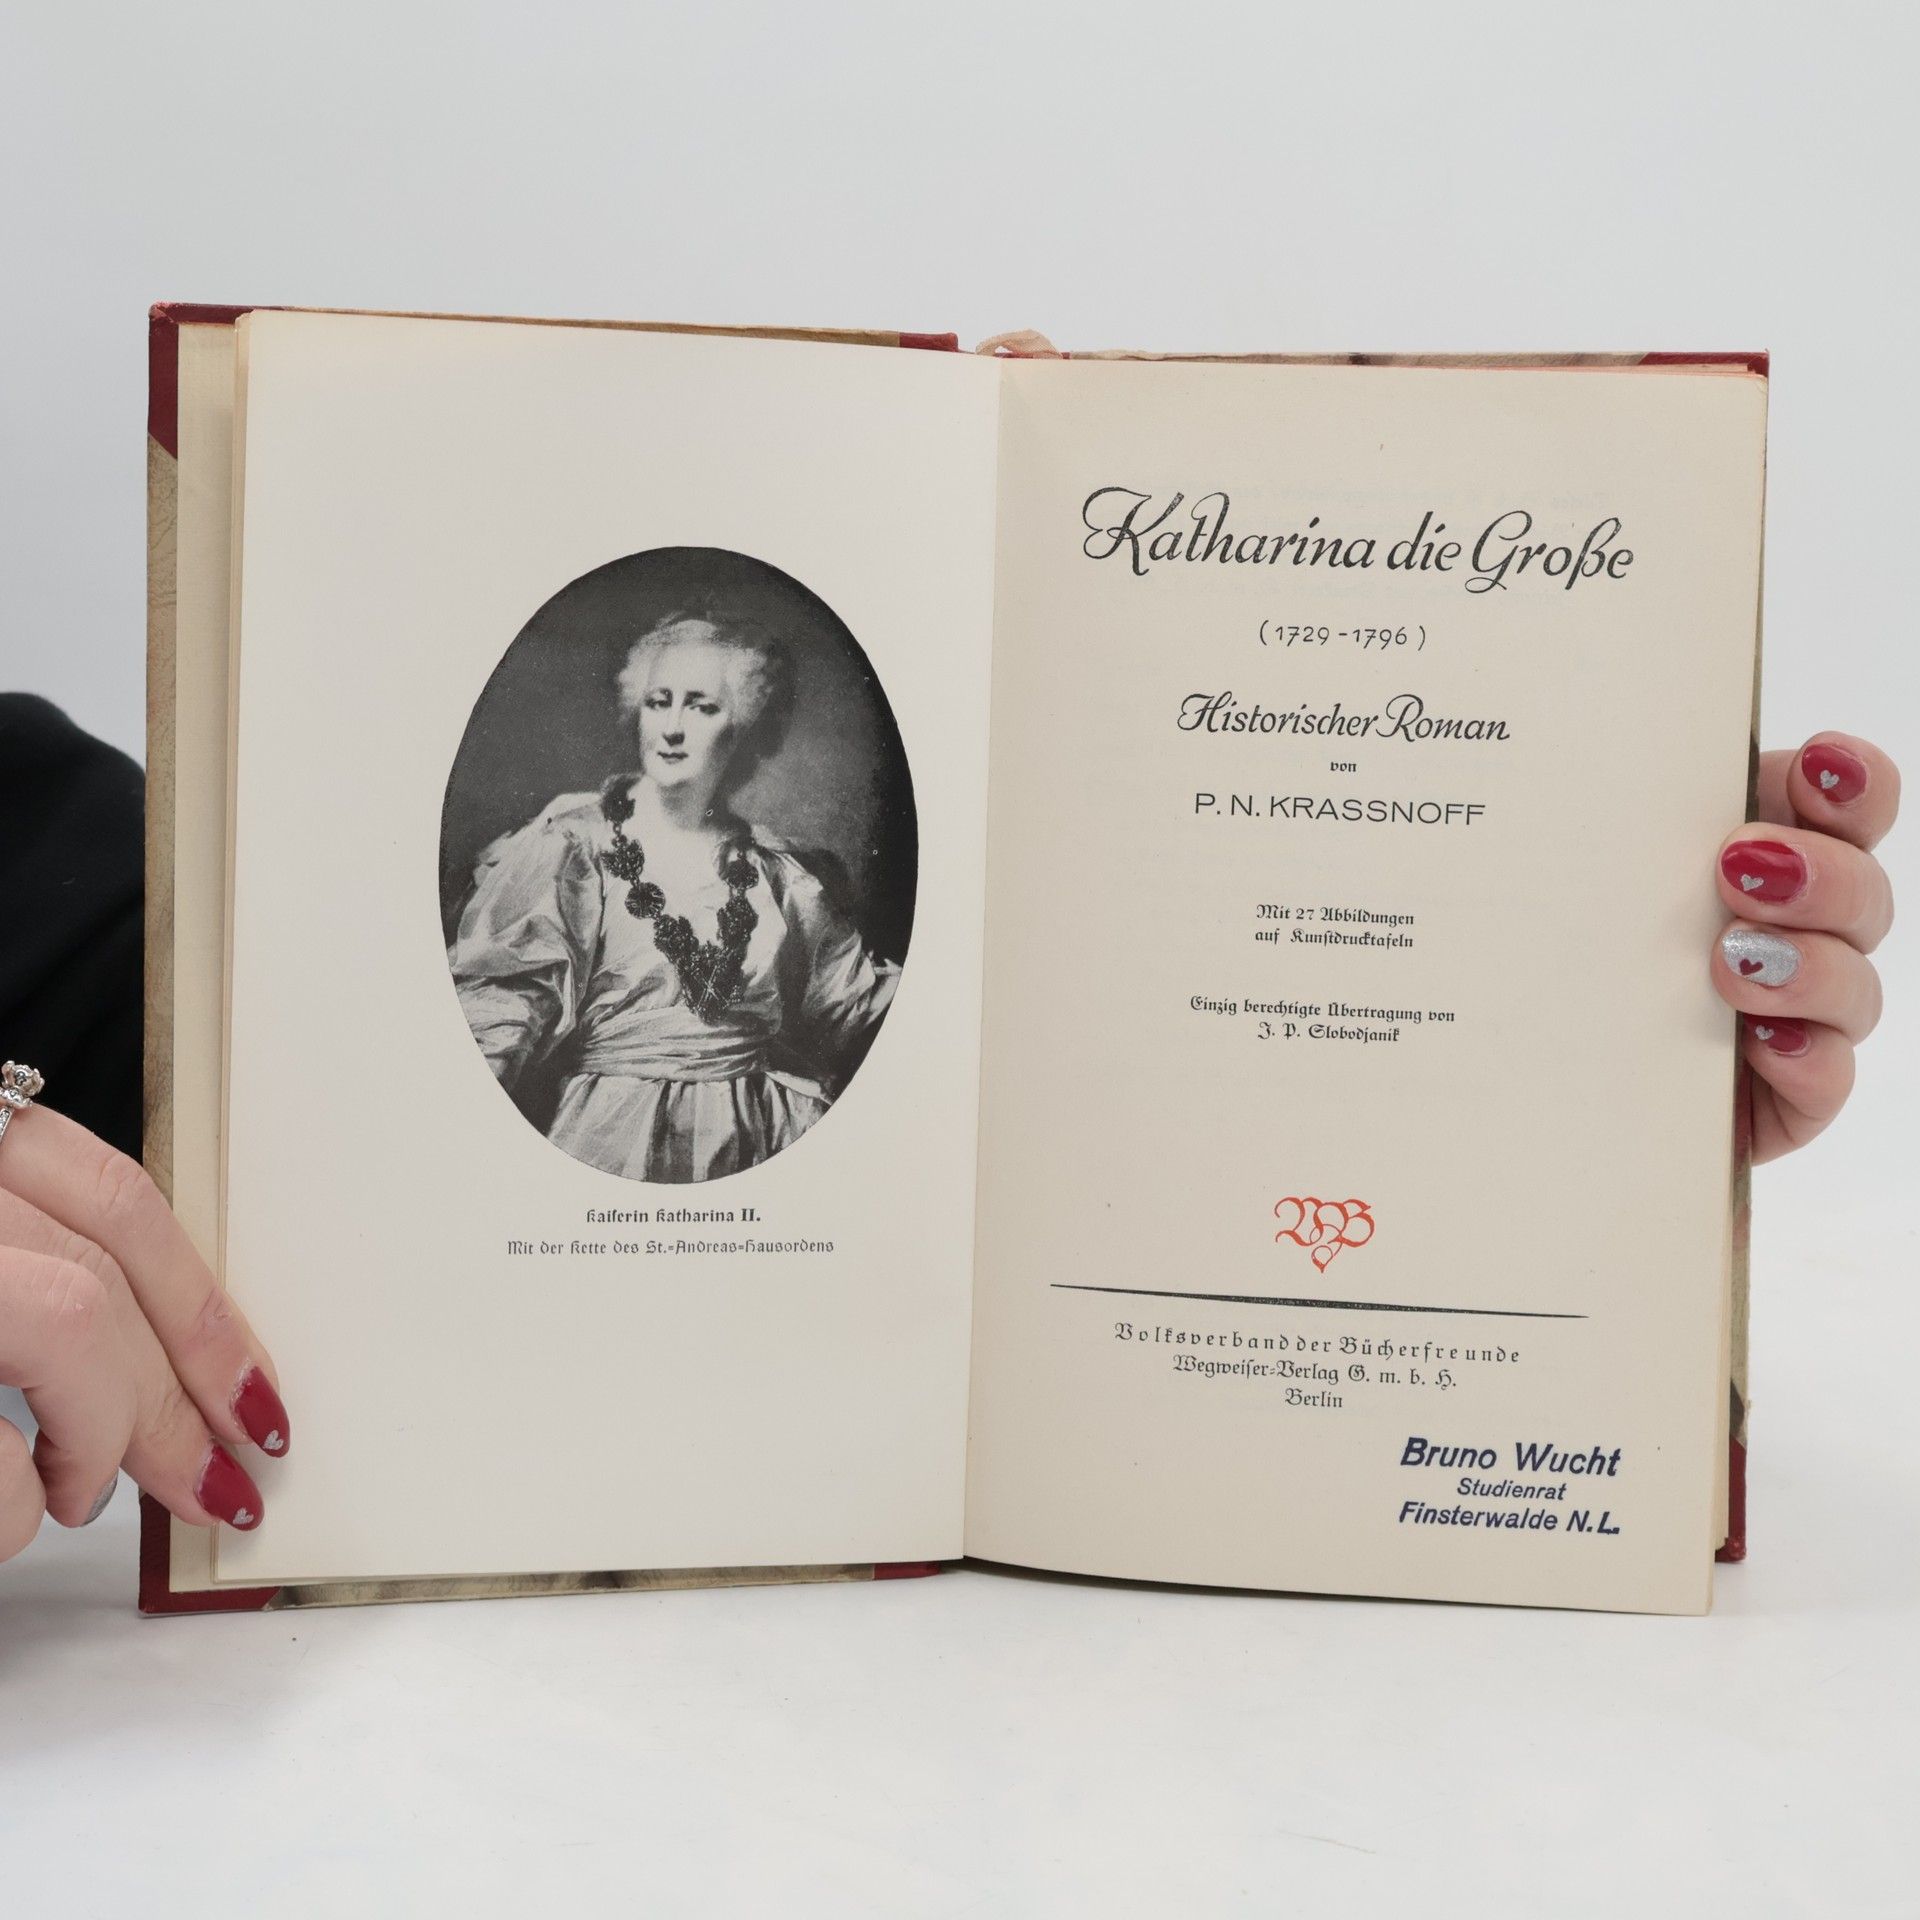 Kaiserin Katharina II.
Mit der Kette des St.=Andreas=Hausordens
Katharina die Große
(1729-1796)
Historischer Roman
von
P. N. KRASSNOFF
Mit 27 Abbildungen
auf Kunstdrucktafeln
Einzig berechtigte Übertragung von
J. P. Slobodjanik
VB
Volksverband der Bücherfreunde
Wegweiser=Verlag G. m. b. H.
Berlin
Bruno Wucht
Studienrat
Finsterwalde N.L.